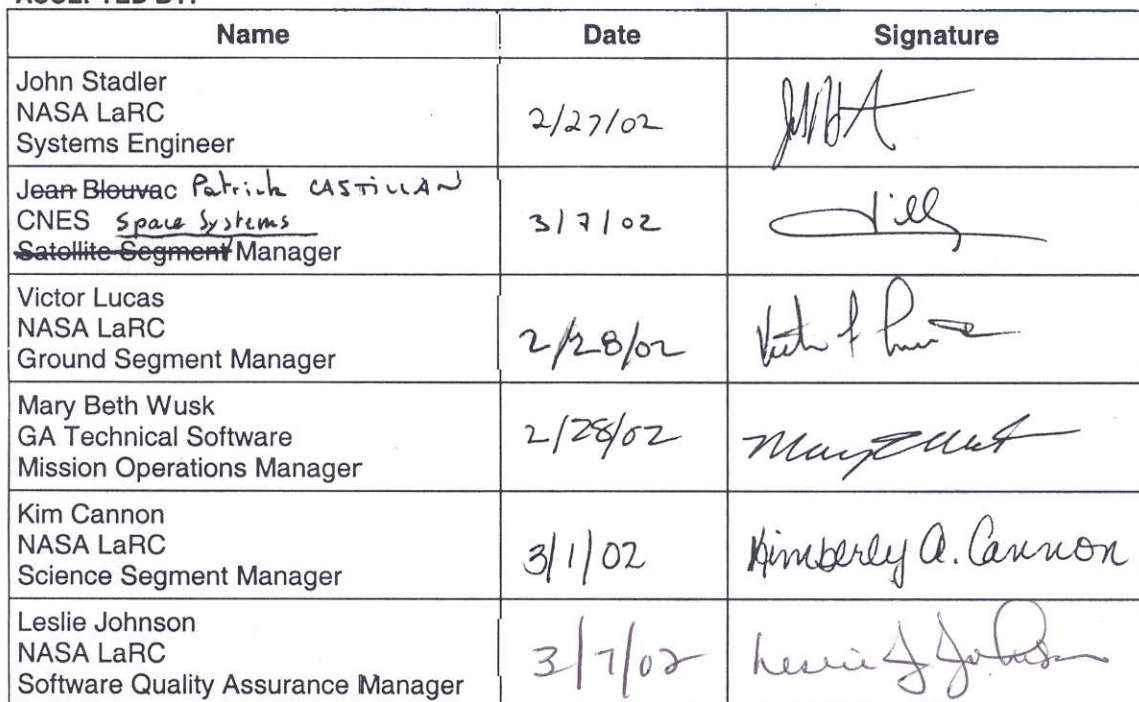 ACCEPTED BY:
Name Date Signature
John Stadler
NASA LaRC
Systems Engineer
2/27/02
Jean Blouvac Patrick CASTILLAN
CNES Space Systems
Satellite Segment Manager
3/7/02
Victor Lucas
NASA LaRC
Ground Segment Manager
2/28/02
Mary Beth Wusk
GA Technical Software
Mission Operations Manager
2/28/02
Kim Cannon
NASA LaRC
Science Segment Manager
3/1/02 Kimberly A. Cannon
Leslie Johnson
NASA LaRC
Software Quality Assurance Manager
3/7/02 Leslie J Johnson